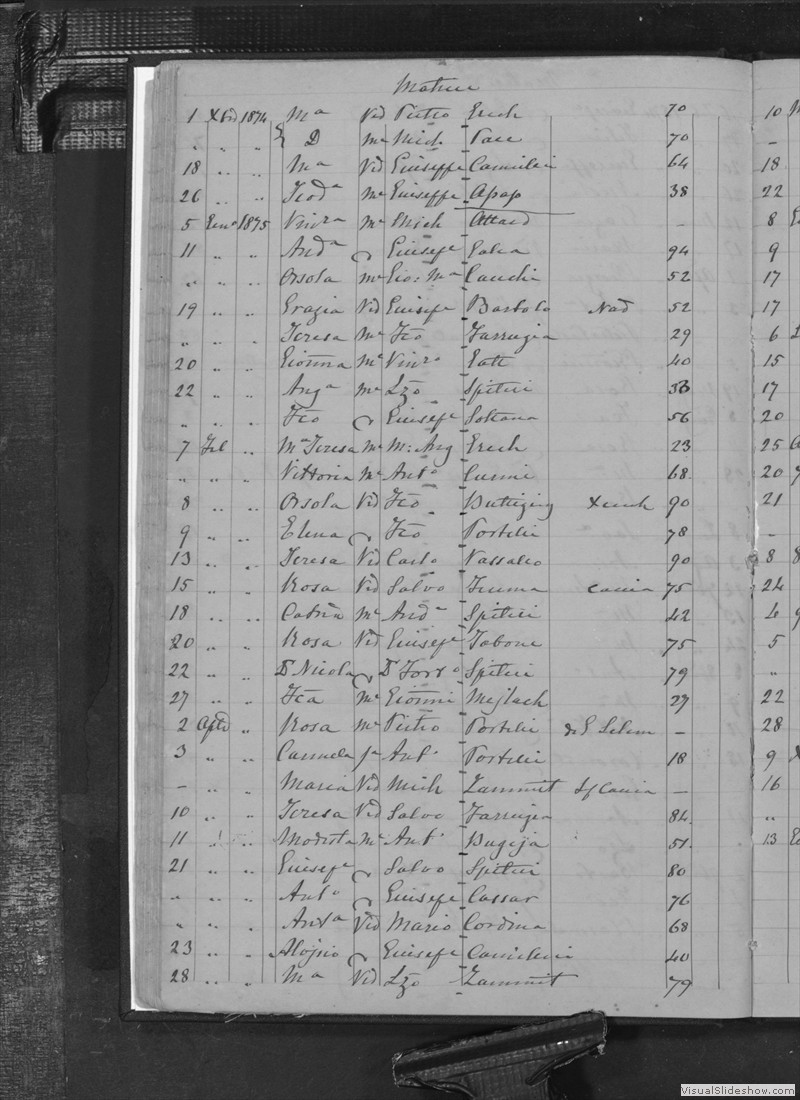 Matrice
1 Xbre 1874 Ma Vid Pietro Erech 70 10
" " " D Me Mich Pace 70 –
18 " " Ma Vid Giuseppe Camileri 64 18
26 " " Teoda Me Giuseppe Apap 38 22
5 Geno 1875 Vinza Me Mich Attard – 8
11 " " Anda Giusepe Galea 94 9
" " " Orsola Me Gio: Ma Cauchi 52 17
19 " " Grazia Vid Giusepe Bartolo Nad 52 17
" " " Teresa Me Fco Farrugia 29 6
20 " " Gionna Me Vinzo Gatt 40 15
22 " " Anga Me Lzo Spiteri 17
" " " Fco Giusepe Soltana 56 20
7 Feb " Ma Teresa Me M: Ang Erech 23 25
" " " Vittoria Me Anto Curmi 68 20
8 " " Orsola Vid Fco Buttigieg Xeuch 90 21
9 " " Elena Fco Portelli 78 –
13 " " Teresa Vid Carlo Vassallo 90 8 8
15 " " Rosa Vid Salvo Zruma Caccia 75 24
18 " " Catna Me Anda Spiteri 42 4
20 " " Rosa Vid Giusepe Tabone 75 5
22 " " Dn Nicola Dr Spiteri 79 "
27 " " Fca Me Gionni Mejlach 27 22
2 Aple " Rosa Me Pietro Portelli – 28
3 " " Carmela fa Anto Portelli 18 9
– " " Maria Vid Mich Zammit Caccia – 16
10 " " Teresa Vid Salvo Farrugia 84 "
11 " " Modesta Me Anto Bugeja 51 13
21 " " Giusepe Salvo Spiteri 80
" " " Anto Giusepe Cassar 76
" " " Anta Vid Mario Cordina 68
23 " " Alojsio Giusepe Camileri 40
28 " " Ma Vid Lzo Zammit 79
VisualSlideshow.com